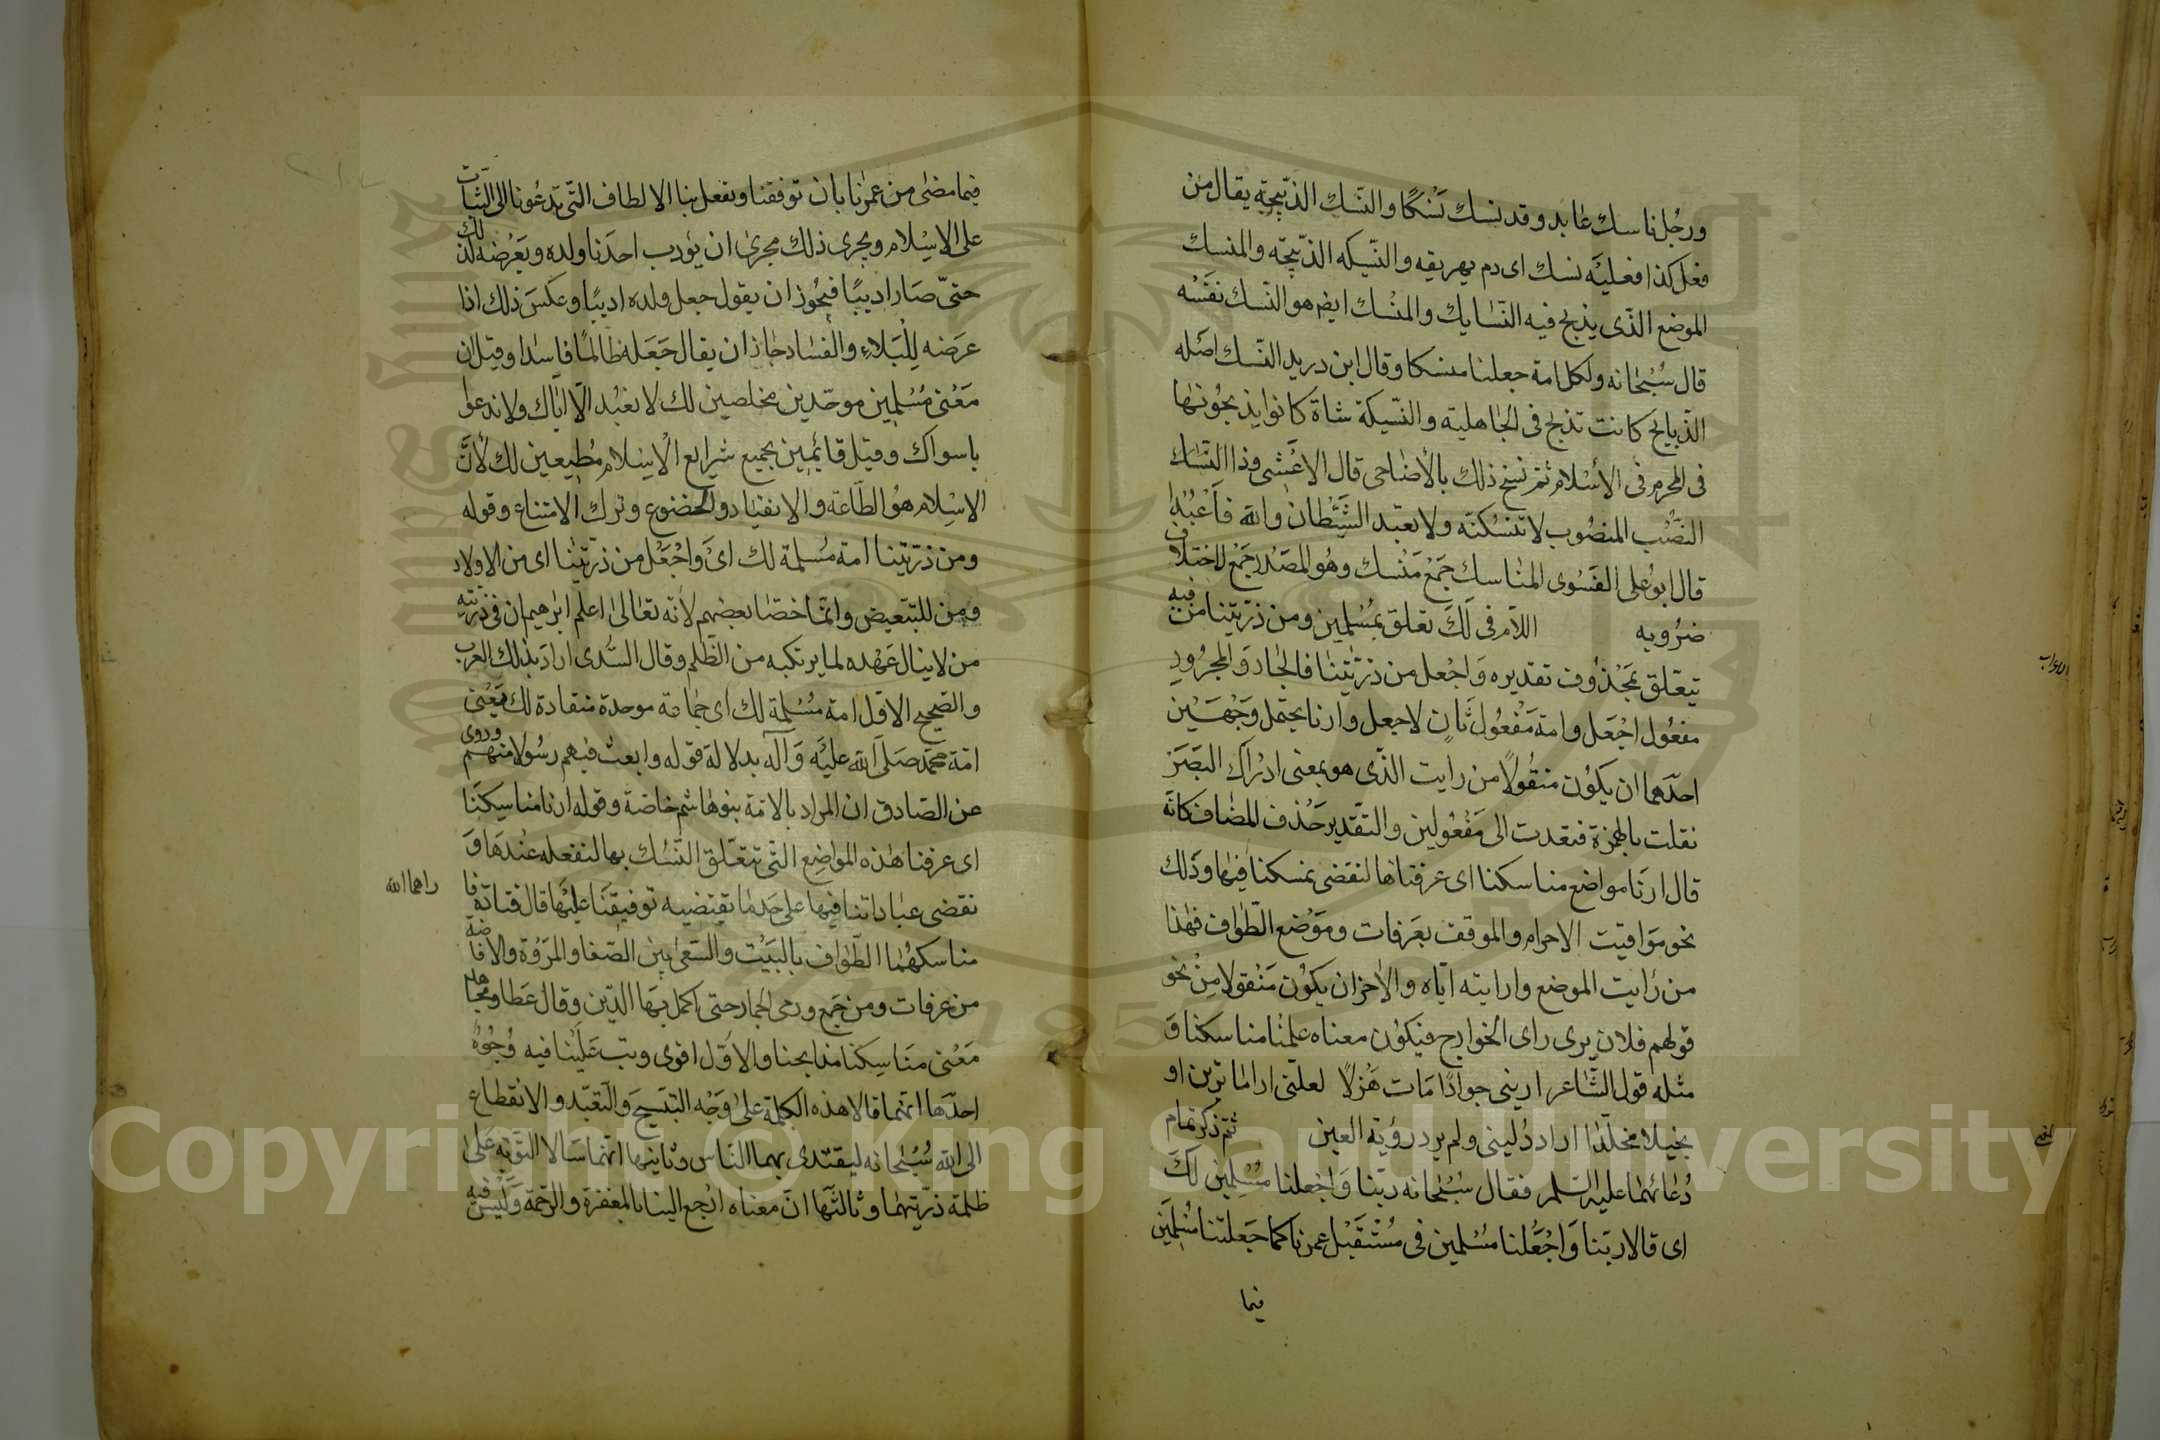 ورجل ناسك عابد وقد نسك نسكا والنسك الذبيحة يقال من
فعل كذا فعليه نسك اى دم يهريقه والنسيكه الذبيحة والمنسك
الموضع الذى يذبح فيه النسايك والمنسك ايض هو النسك نفسه
قال سبحانه ولكل امة جعلنا منسكا وقال ابن دريد النسك اصله
الذبايح كانت تذبح فى الجاهلية والنسيكة شاة كانوا يذبحونها
فى المحرم فى الأسلام ثم نسخ ذلك بالأضاحى قال الاعشى وذا النسك
النصب المنصوب لا تنسكنه ولا تعبد الشيطان والله فاعبدا
قال ابو على الفسوى المناسك جمع منسك وهو المصدر جمع لاختلاف
ضروبه اللام فى لك تعلق بمسلمين ومن ذريتنا من فيه
تيعلق بمحذوف تقديره واجعل من ذريتنا فالجار والمجرور
مفعول اجعل وامة مفعول ثان لاجعل وارنا يحتمل وجهين
احدهما ان يكون منقولا من رايت الذى هو بمعنى ادراك البصر
نقلت بالهمزة فتعدت الى مفعولين والتقدير حذف المضاف كانه
قال ارنا مواضع مناسكنا اى عرفناها لنقضى نمسكنا فيها وذلك
نحو مواقيت الاحرام والموقف بعرفات وموضع الطواف فهذا
من رايت الموضع واراينه اياه والاخر ان يكون منقولا من نحو
قولهم فلان يرى راى الخوارج فيكون معناه علمنا مناسكنا و
مثله قول الشاعر ارينى جوادا مات هزلا لعلنى ارا ما ترين او
بخيلا مخلدا اراد دلينى ولم يرد رؤية العين ثم ذكر تمام
دعائهما عليه السلم فقال سبحانه ربنا واجعلنا مسلمين لك
اى قالا ربنا واجعلنا مسلمين فى مستقبل عمرنا كما جعلتنا مسلمين
فيما
فيما مضى من عمرنا بان توفقنا وتفعل بنا الالطاف التى تدعونا الى الثبات
على الاسلام ويجرى ذلك مجرى ان يؤدب احدنا ولده ويعرضه لذلك
حتى صار اديبا فيجوز ان يقول جعل ولده اديبا وعكس ذلك اذا
عرضه للبلاء والفساد جاز ان يقال جعله ظالما فاسدا وقيل ان
معنى مسلمين موحدين مخلصين لك لا نعبد الا اياك ولا ندعوا
باسواك وقيل قايمين بجميع شرايع الاسلام مطيعين لك لأن
الاسلام هو الطاعة والانقياد والخضوع وترك الامتناع وقوله
ومن ذريتنا امة مسلمة لك اى واجعل من ذريتنا اى من الاولاد
ومن للتبعيض وانما خصا بعضهم لأنه تعالى اعلم ابراهيم ان فى ذريته
من لا ينال عهده لما يرتكبه من الظلم وقال السدى اراد بذلك العرب
والصحيح الاول امة مسلمة لك اى جماعة موحدة منقادة لك يعنى
امة محمد صلى الله عليه وآله بدلالة قوله وابعث فيهم رسولا منهم وروى
عن الصادق ان المراد بالامة بنو هاشم خاصة وقوله ارنا مناسكنا
اى عرفنا هذه المواضع التى تتعلق النسك بها لنفعله عندها و
نقضى عباداتنا فيها على حد ما يقتضيه توفيقنا عليها قال قتادة فا
راهما الله
مناسكهما الطواف بالبيت والسعى بين الصفا والمروة والافاضة
من عرفات ومن جمع ورمى الجمار حتى اكمل بها الدين وقال عطا ومجاهد
معنى مناسكنا مذابحنا والاول اقوى وتب علينا فيه وجوه
احدها انهما قالا هذه الكلمة على وجه التسبيح والتعبد والانقطاع
الى الله سبحانه ليقتدى بهما الناس وثانيها انهما سالا التوبة على
ظلمة ذريتهما وثالثها ان معناه ارجع الينا بالمغفرة والرحمة وليس فيه
Copyright © King Saud University
1957